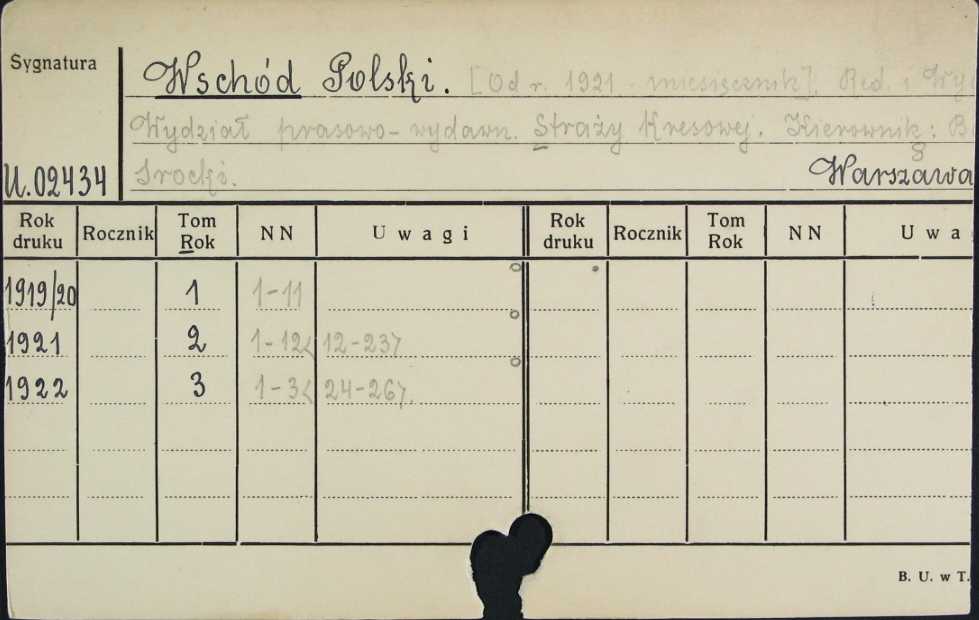 Sygnatura
Wschód Polski. [Od r. 1921 - miesięcznik]. Red. i Wy
Wydział prasowo-wydawn. Straży Kresowej. Kierownik: B
U.02434 Srocki. Warszawa
Rok druku Rocznik Tom Rok NN Uwagi Rok druku Rocznik Tom Rok NN Uwa
1919/20 1 1-11
1921 2 1-12< 12-23>
1922 3 1-3< 24-26>.
B. U. w T.